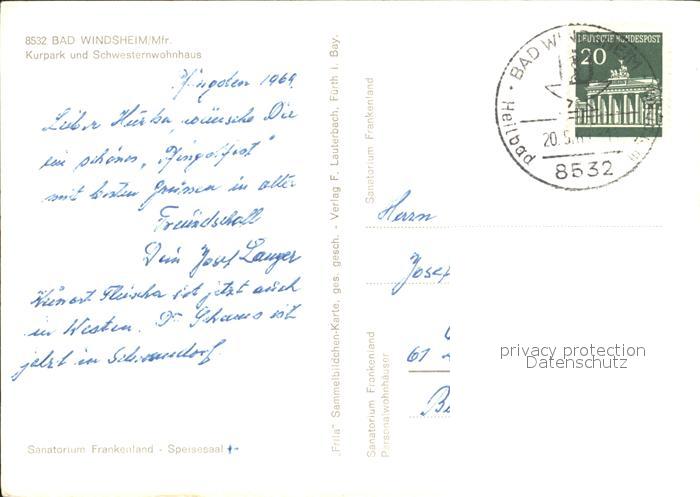 8532 BAD WINDSHEIM/Mfr.
Kurpark und Schwesternwohnhaus
Pfingsten 1969
Lieber Hurka, wünsche Die
ein schönes, "Pfingstfest"
mit besten Grüssen in alter
Freundschaft
Dein Josef Langer
Kurarzt Fleischer ist jetzt auch
in Westen. Dr. Schams ist
jetzt in Schwandorf.
Sanatorium Frankenland - Speisesaal
"Frila" Sammelbildchen-Karte, ges. gesch. - Verlag F. Lauterbach, Fürth i. Bay.
Sanatorium Frankenland
Sanatorium Frankenland
Personalwohnhäuser
DEUTSCHE BUNDESPOST
20
BAD WINDSHEIM
Heilbad
20.5.
8532
Herrn
Josef
61
privacy protection
Datenschutz